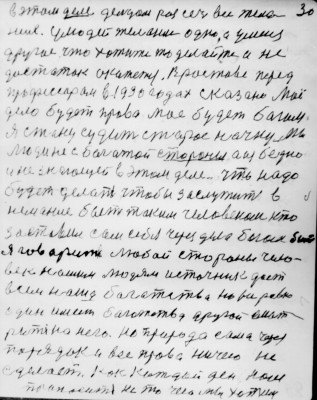 в этом деле делом раз сеч все тела 30
ние. У людей желание одно, а у них
другое что хотите то делайте, и не
достаток окажет. в Ростове перед
профессорам в 1930 годах сказано мое
дело будет права мое будет богат.
Я стану судить старое начну мы
люди не с богатой стороны а из бедно
и не знающей в этом деле. что надо
будет делать чтобы заслужить в
нимание быть таким человеком кто
заставил сам себя через дела богом быть
Я говорит любой стороны чело
век нашим людям источник дает
всем наша богатства но видовое
один имеет богатство другой смот
рит на него. Но природа сама через
порядок и все права ничего не
сделает. Как каждый ден нам
приносит не то чего мы хотим